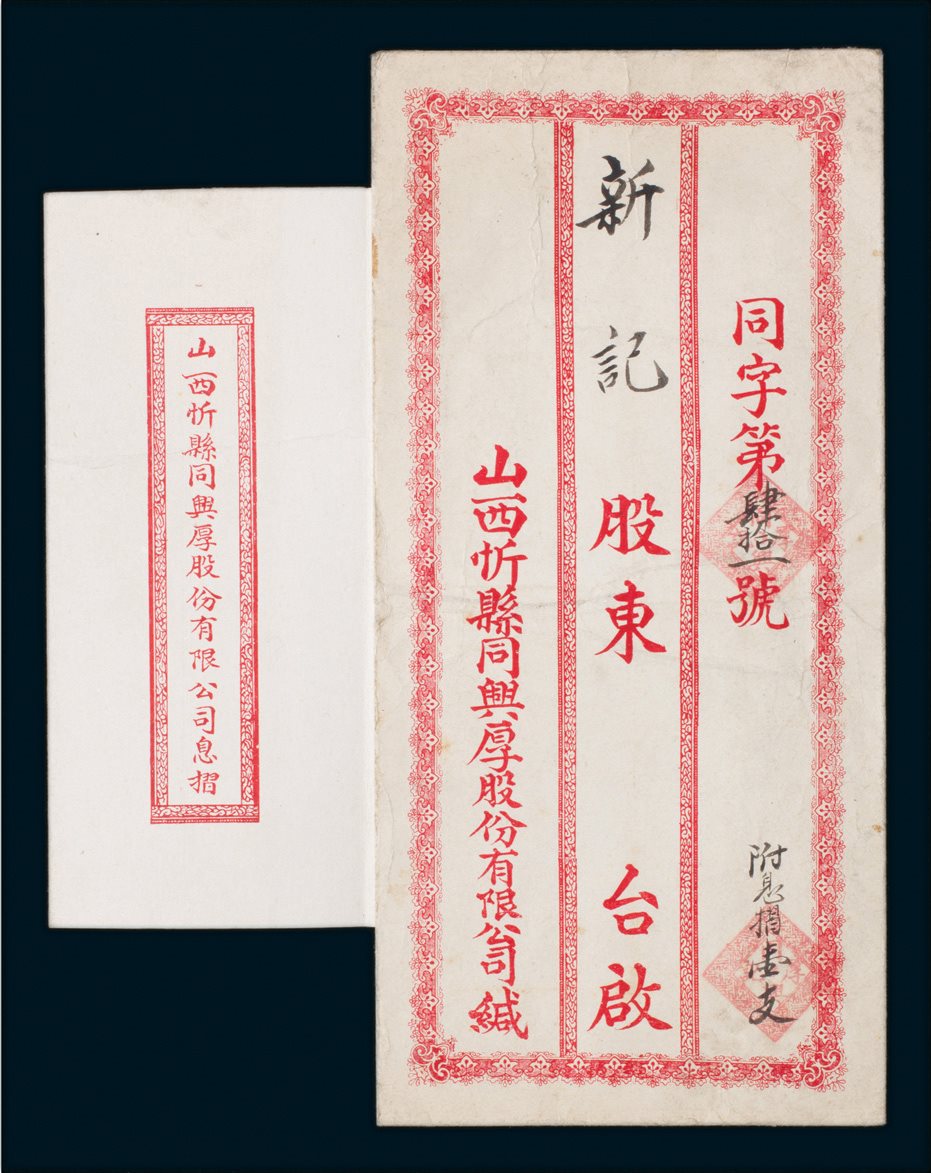 同字第肆拾一號
附息摺壹支
新記股東台啟
山西忻縣同興厚股份有限公司緘
山西忻縣同興厚股份有限公司息摺